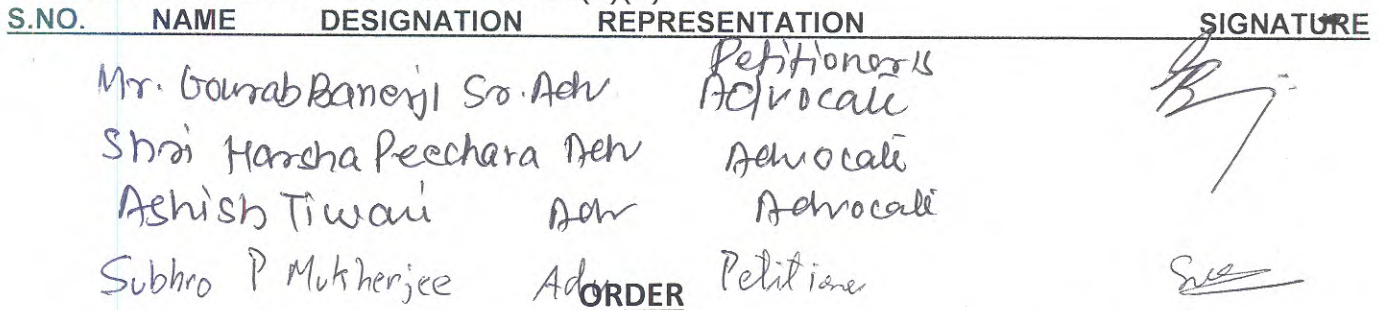 S.NO. NAME DESIGNATION REPRESENTATION SIGNATURE
Petitioner's
Mr. Gourab Banerji Sr. Adv Advocate
Shri Harsha Peechara Adv Advocate
Ashish Tiwari Adv Advocate
Subhro P Mukherjee Adv Petitioner
ORDER